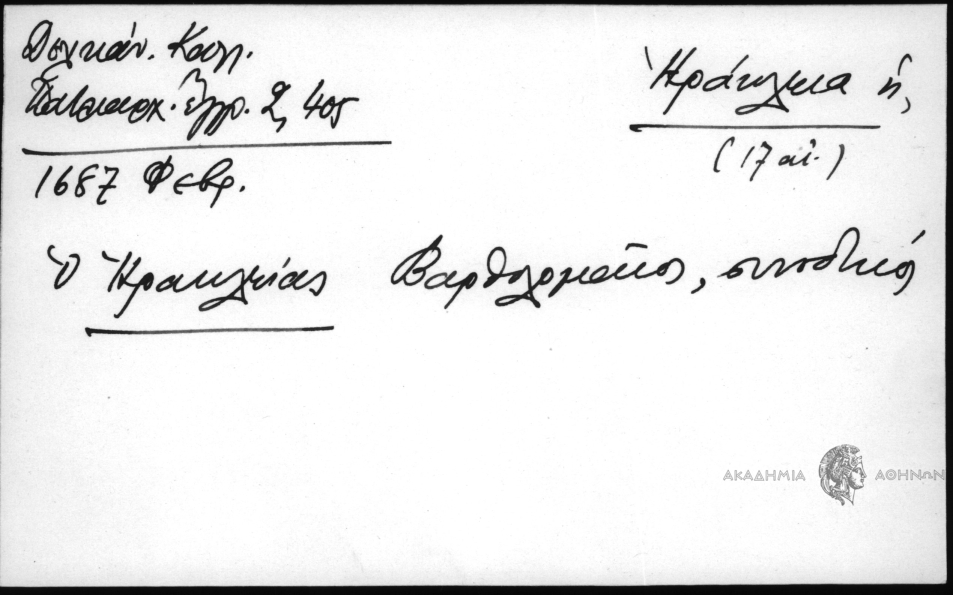 Δελικάν. Καλλ.
Πατριαρχ. ἔγγρ. 2, 405
1687 Φεβρ.
Ἡράκλεια ἡ,
(17 αἰ.)
Ὁ Ἡρακλείας Βαρθολομαῖος, συνοδικός
ΑΚΑΔΗΜΙΑ ΑΘΗΝΩΝ